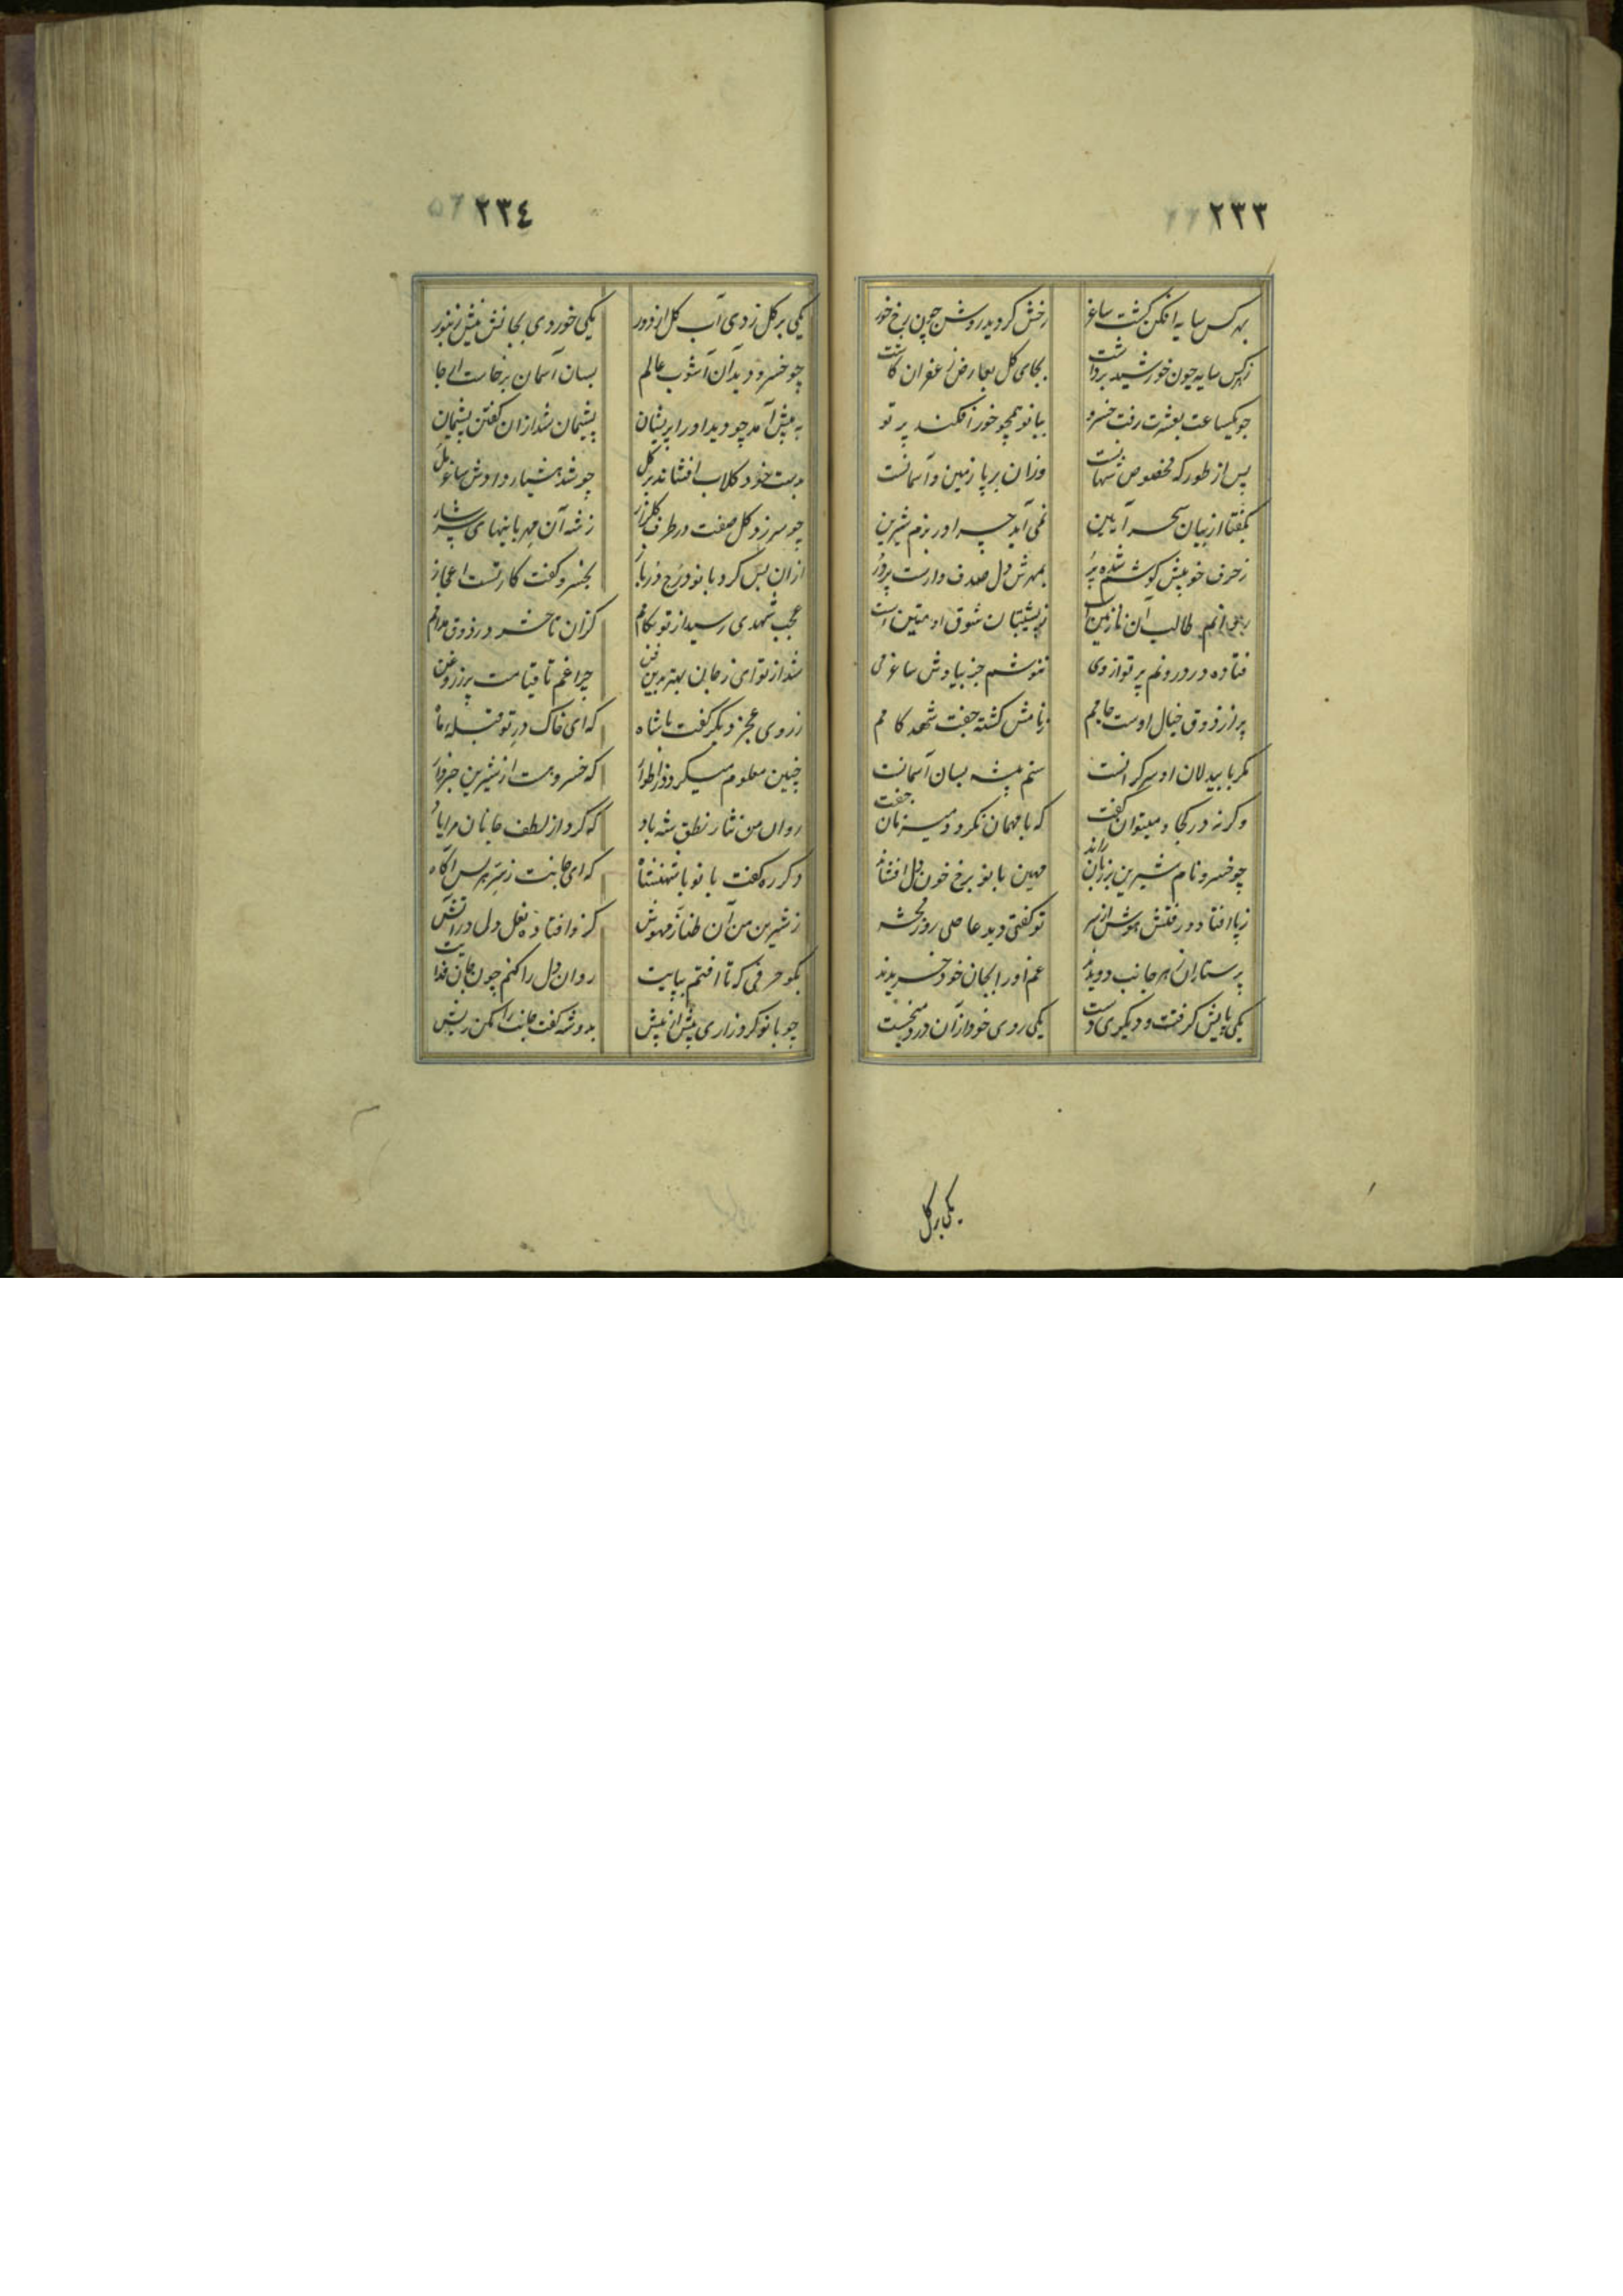 ۲۳۳
بهر کس سایه افکن گشت ساغر رخش کردید روشن چون رخ خور
زهر کس سایه چون خورشید برداشت بجای کل بعارض زعفران کاشت
چو یکساعت بعشرت رفت خسرو ببانو همچو خور افکند پرتو
پس از طور که مخصوص شهانست وزان برپا زمین و آسمانست
بگفتا از بیان سحر آیین نمی آید چرا در بزم شیرین
ز حرف خوبیش کوشم شده پر بمهرش دل صدف وارست پر در
طالب آن نازنین است شوق او متین است
فتاده در درونم پرتو از وی ننوشم جز بیادش ساغر می
پر از ذوق خیال اوست جامم ز نامش کشته جفت شهد کامم
مکر با بیدلان او سرکرانست ستم پیشه بسان آسمانست
وکرنه در کجا میتوان گفت که با مهمان نکردد میزبان جفت
چو خسرو نام شیرین بر زبان راند مهین بانو برخ خون دل افشاند
ز پا افتاد و رفتش هوش از سر تو کفتی دید عاصی روز محشر
پرستاران ز هر جانب دویدند غم او را بجان خود خریدند
یکی پایش گرفت و دیگری دست یکی روی خود از آن درد میخست
یکی بر کل
۲۳۴
یکی بر کل زدی آب کل از دور یکی خوردی بجانش نیش زنبور
چو خسرو دید آن آشوب عالم بسان آسمان برخاست از جا
به پیش آمد چو دید او را پریشان پشیمان شد از ان کفتن پشیمان
بدست خود کلاب افشاند بر کل چو شد هشیار دادش ساغر مل
چو سر زد کل صفت در طرف کلزار ز شه آن مهربانیهای سرشار
از ان پس کرد بانو درج در باز بخسرو کفت کارتست اعجاز
عجب شهدی رسید از تو بکامم کزان تا حشر در ذوق مدامم
شد از تو ای ز جان بهتر بدین فن چراغم تا قیامت پر ز روغن
ز روی عجز دیگر کفت با شاه که ای خاک در تو قبله ماه
چنین معلوم میکردد ز اطوار که خسرو هست از شیرین خبردار
روان من نثار نطق شه باد که کرد از لطف جانان مرا یاد
دکر ره کفت بانو با شهنشاه که ای جانت ز سر هر کس آکاه
ز شیرین من آن طناز مهوش کزو افتاده نعل دل در آتش
بکو حرفی که تا افتم بپایت روان دل را کنم چون جان فدایت
چو بانو کرد زاری پیش از پیش بدو شه کفت جانت را مکن ریش